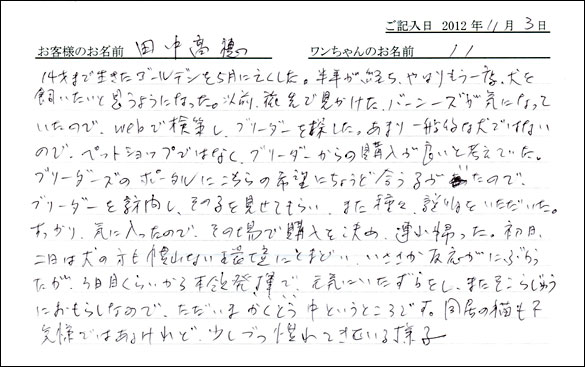 ご記入日 2012 年 11 月 3 日
お客様のお名前 田中高穂 ワンちゃんのお名前 ノノ
14才まで生きたゴールデンを5月に亡くした。半年が経ち、やはりもう一度、犬を
飼いたいと思うようになった。以前、旅先で見かけた、バーニーズが気になって
いたので、webで検策し、ブリーダーを探した。あまり一般的な犬ではない
ので、ペットショップではなく、ブリーダーからの購入が良いと考えていた。
ブリーダーズのポータルにこちらの希望にちょうど合う子がいたので、
ブリーダーを訪問し、その子を見せてもらい、また種々、説明をいただいた。
すっかり、気に入ったので、その場で購入を決め、連れ帰った。初日、
二日は犬の方も慣れない環境にとまどい、いささか反応がにぶかっ
たが、3日目くらいから本領発揮で、元気にいたずらをし、またそこらじゅう
におもらしなので、ただいま かくとう中というところです。同居の猫も不
気嫌ではあるけれど、少しづつ慣れてきている様子